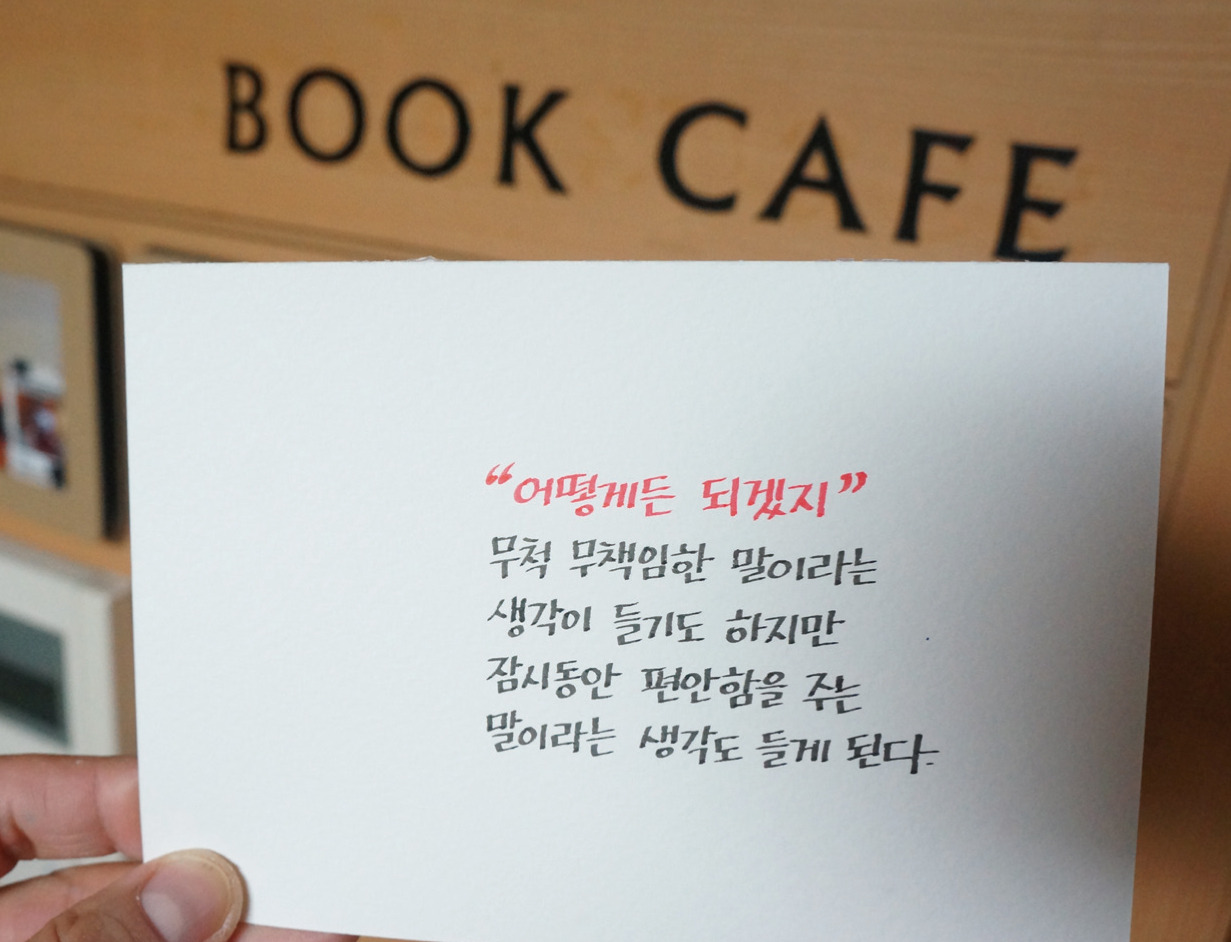 BOOK CAFE
“어떻게든 되겠지”
무척 무책임한 말이라는
생각이 들기도 하지만
잠시동안 편안함을 주는
말이라는 생각도 들게 된다.